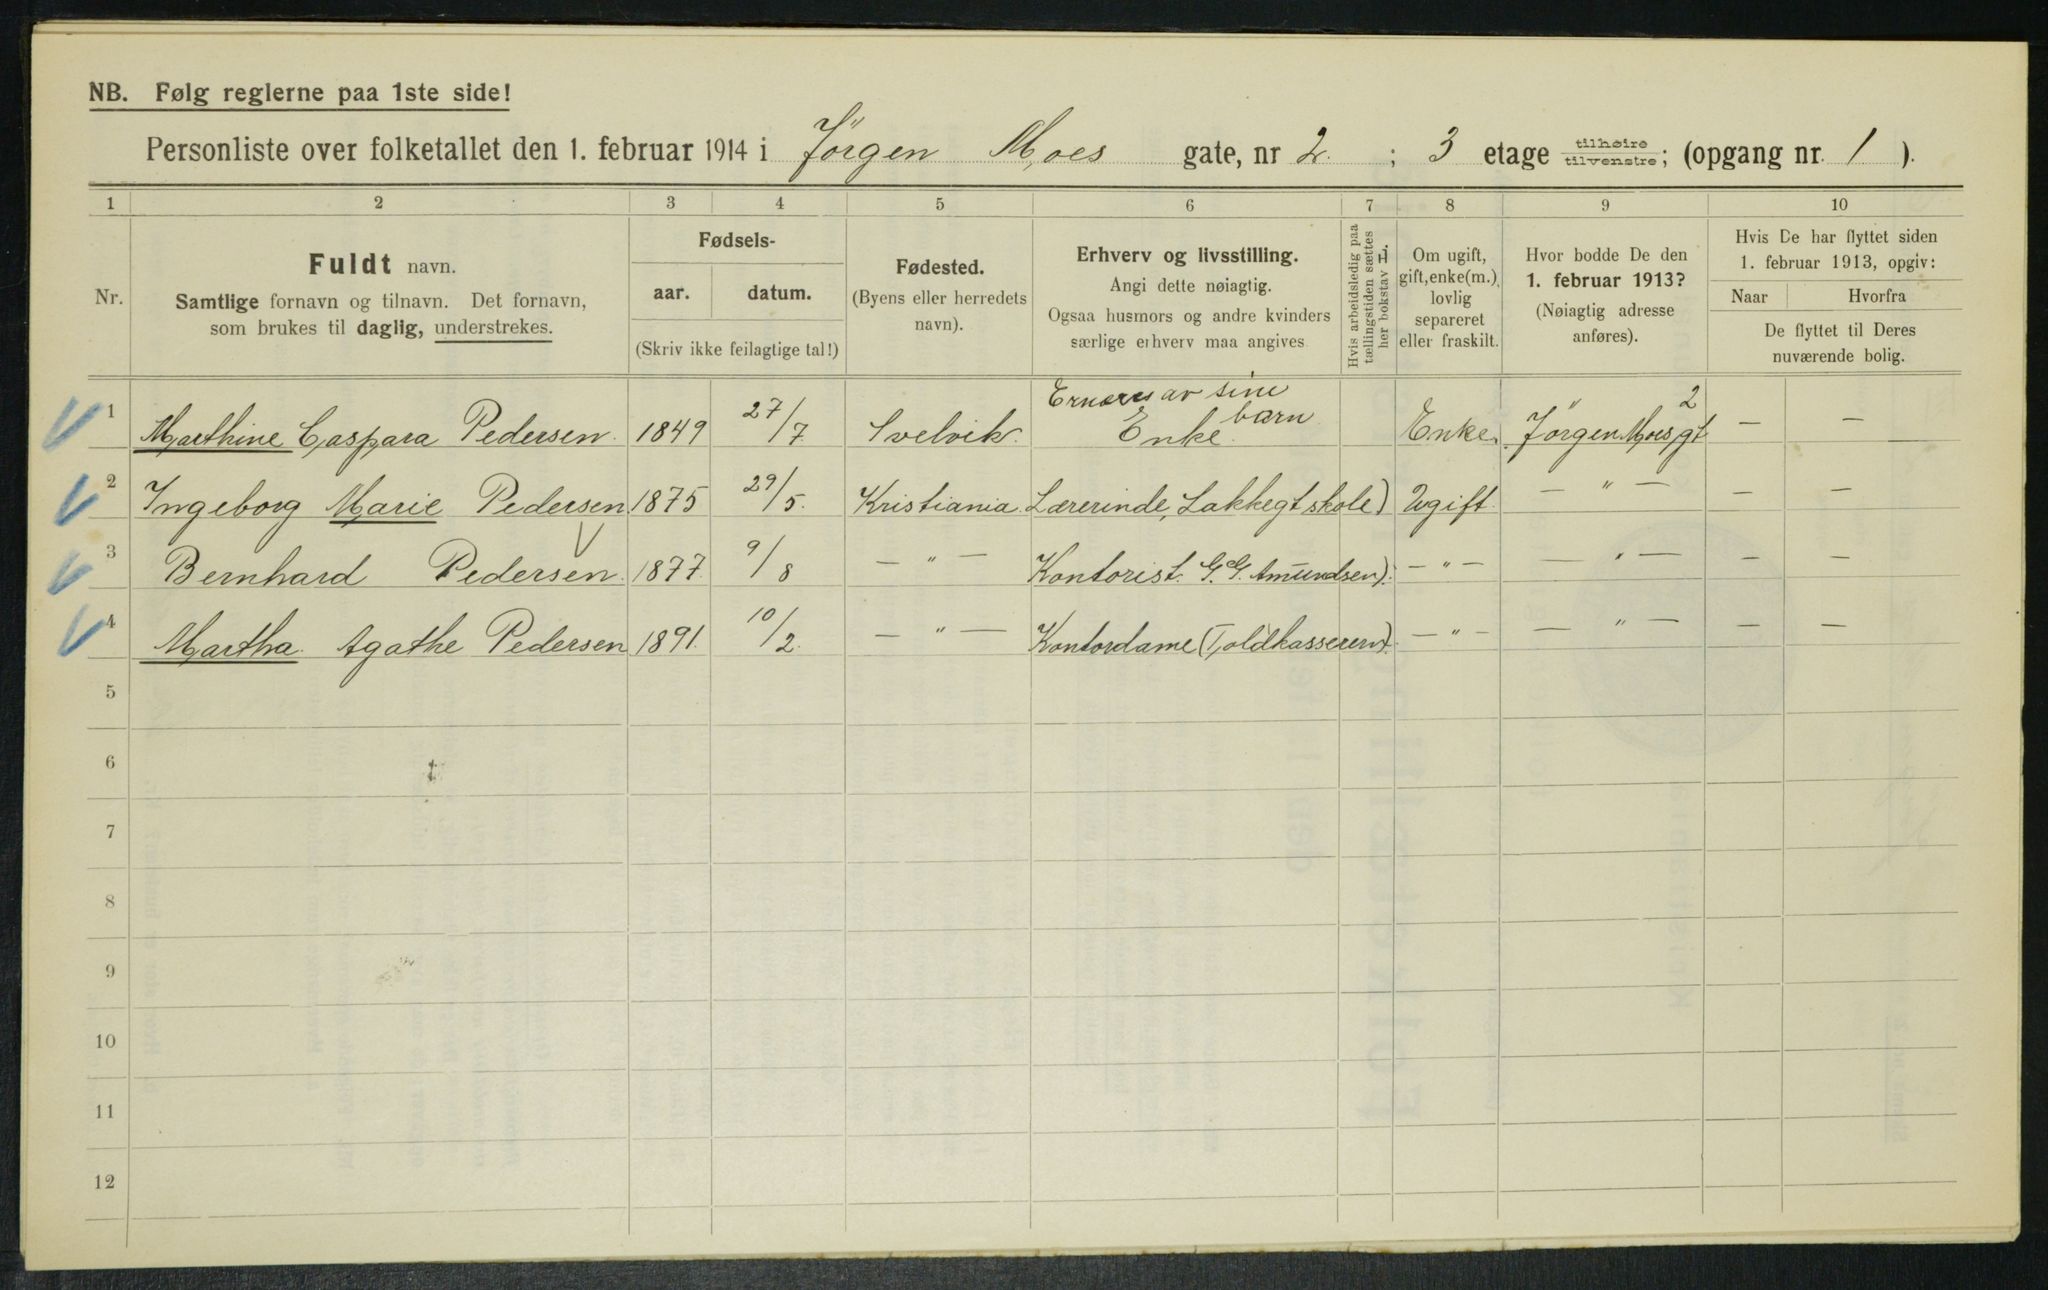 NB. Følg reglerne paa 1ste side!
Personliste over folketallet den 1. februar 1914 i Jörgen Moes gate, nr 2 ; 3 etage tilhøire tilvenstre; (opgang nr. 1 ).
1 2 3 4 5 6 7 8 9 10
Nr.
Fuldt navn.
Samtlige fornavn og tilnavn. Det fornavn,
som brukes til daglig, understrekes.
Fødsels-
aar. datum.
(Skriv ikke feilagtige tal!)
Fødested.
(Byens eller herredets
navn).
Erhverv og livsstilling.
Angi dette nøiagtig.
Ogsaa husmors og andre kvinders
særlige erhverv maa angives
Hvis arbeidsledig paa
tællingstiden sættes
her bokstav L.
Om ugift,
gift, enke(m.),
lovlig
separeret
eller fraskilt.
Hvor bodde De den
1. februar 1913?
(Nøiagtig adresse
anføres).
Hvis De har flyttet siden
1. februar 1913, opgiv:
Naar Hvorfra
De flyttet til Deres
nuværende bolig.
Ernæres av sine barn
1 Marthine Caspara Pedersen. 1849 27/7 Svelvik. Enke. Enke. Jörgen Moes gt 2 — —
2 Ingeborg Marie Pedersen 1875 29/5. Kristiania. Lærerinde, Lakkegt skole) Ugift. — " — — —
3 Bernhard Pedersen. 1877. 9/8 — " — Kontorist. G. G. Amundsen). — " — — " — — —
4 Martha. Agathe Pedersen 1891. 10/2. — " — Kontordame (Toldkasseren). — " — — " — — —
5
6
7
8
9
10
11
12